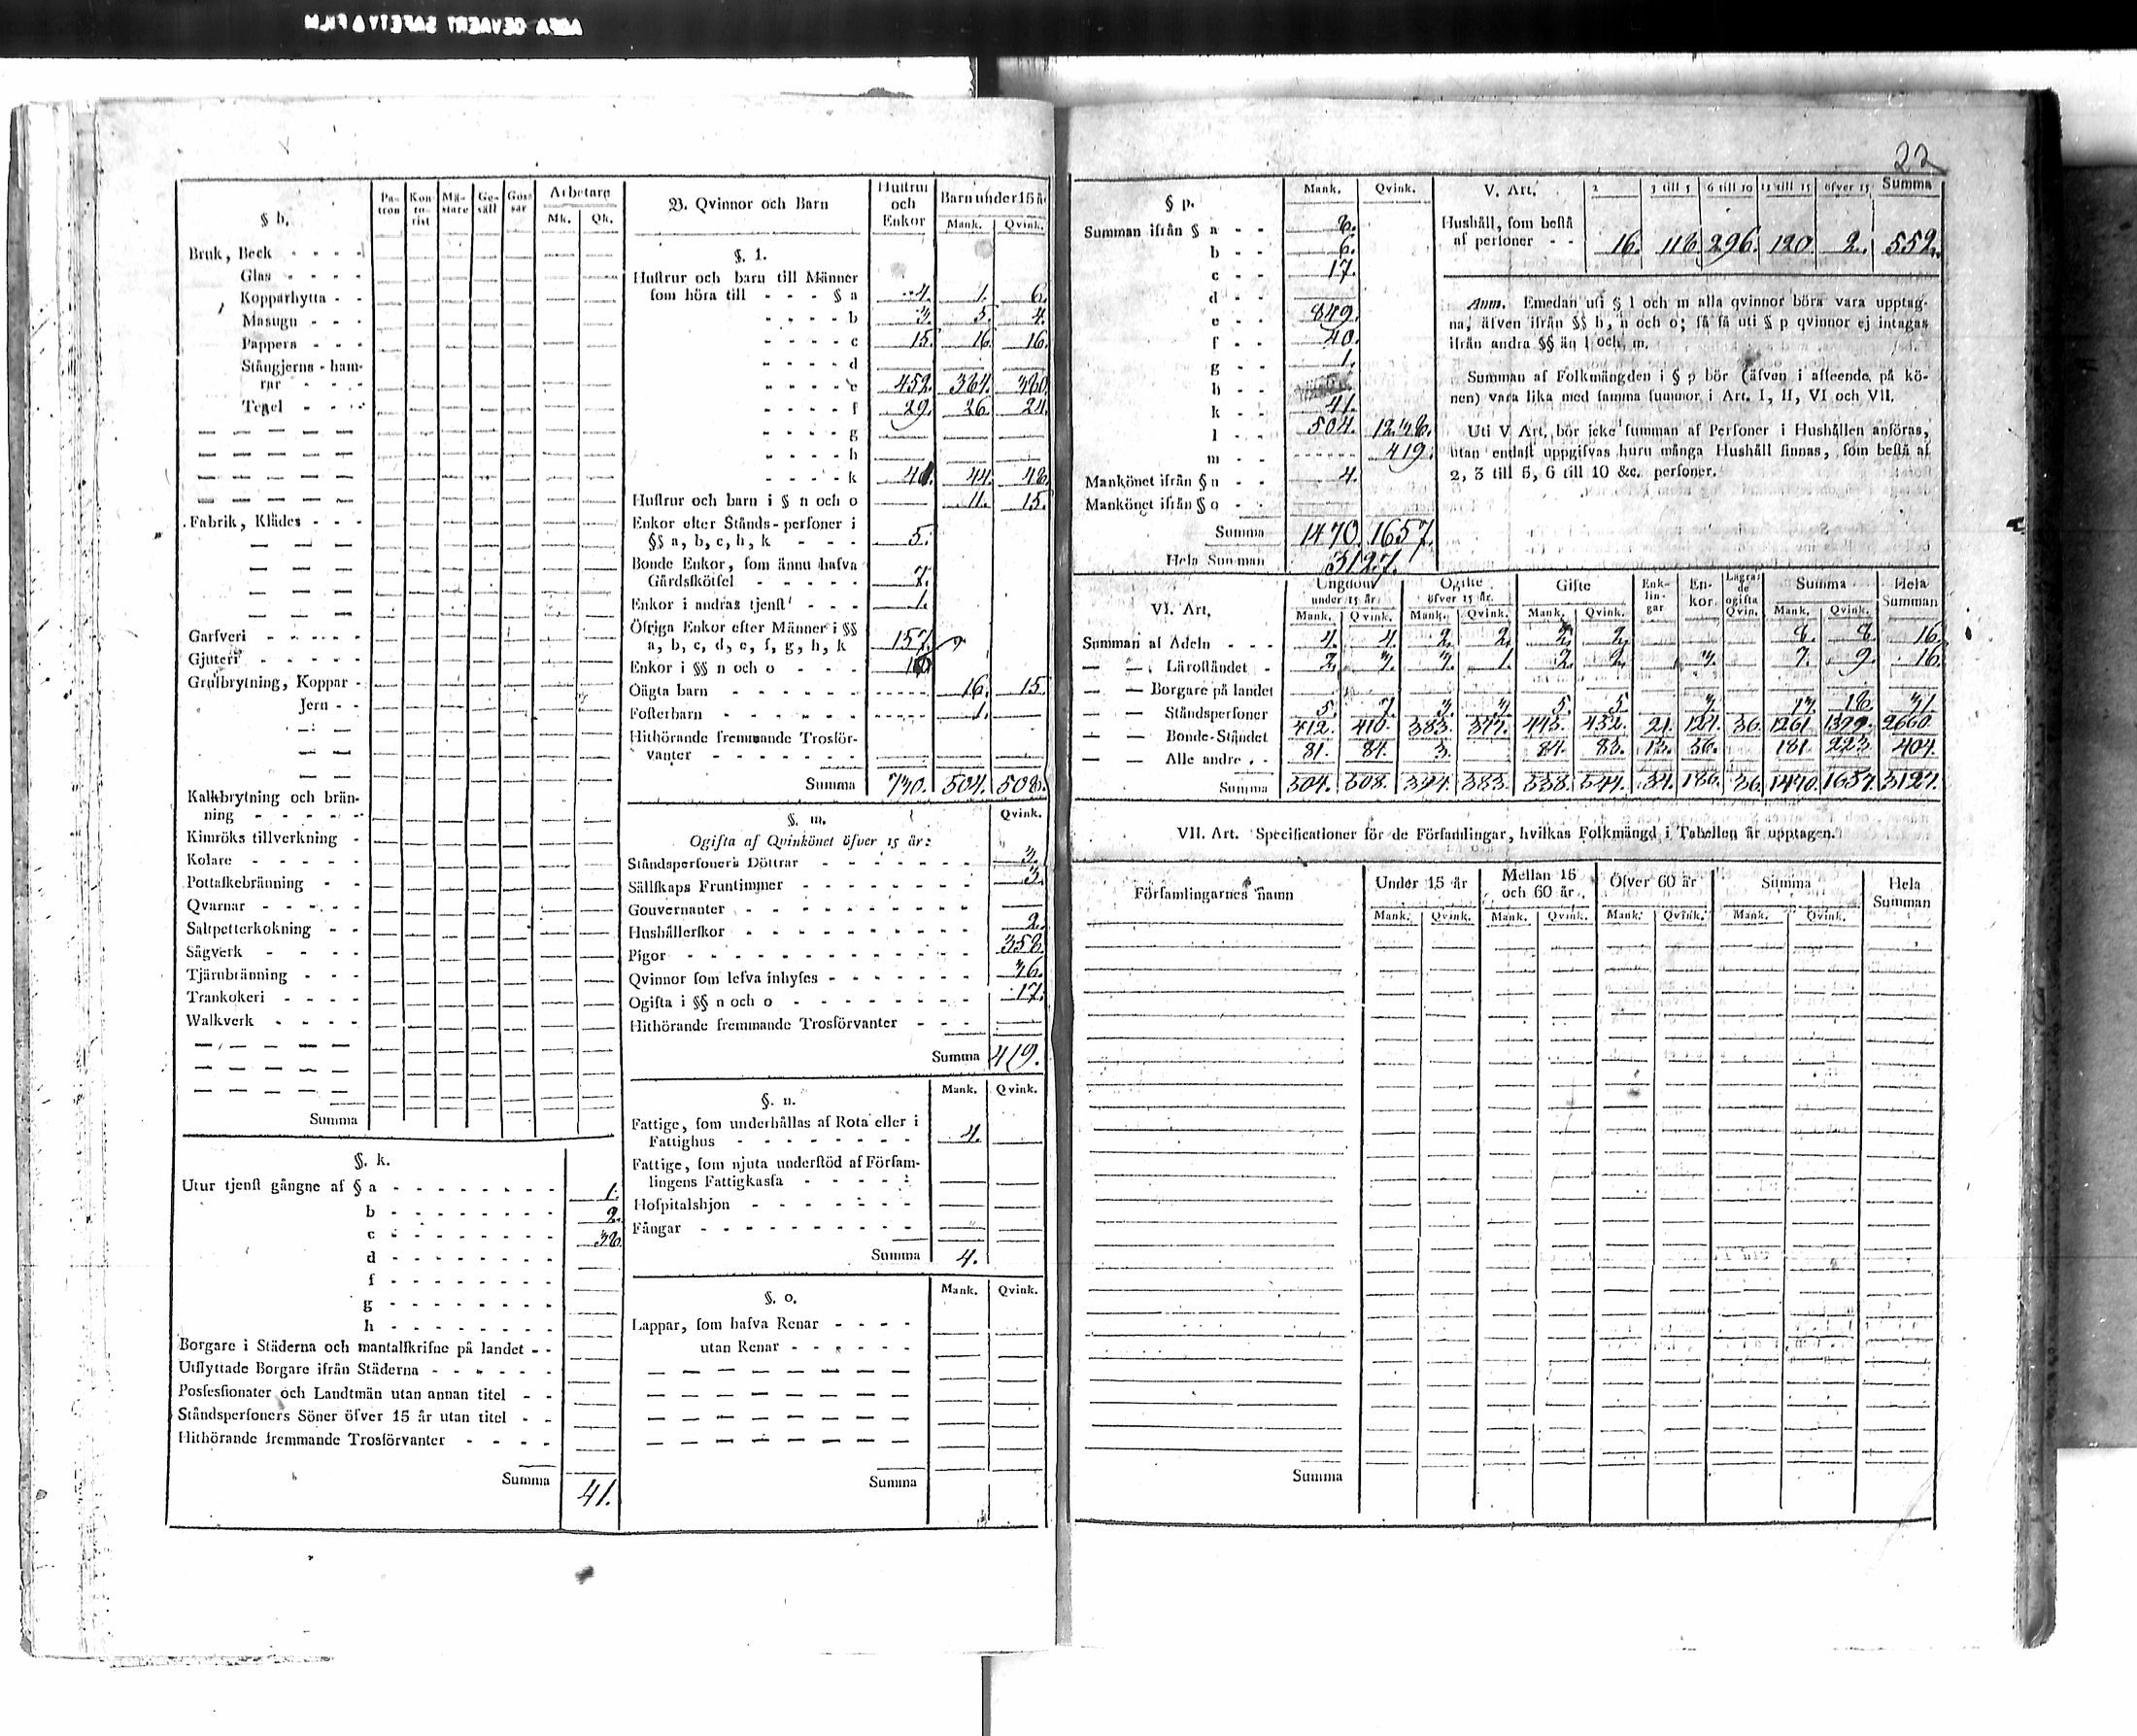 AGFA GEVAERT SAFETY FILM
22
§ h.
Pa-tron Kon-to-rist Mä-stare Ge-säll Gos-sar Arbetare
Mk. Qk.
Bruk, Beck
Glas
Kopparhytta
Masugn
Pappers
Stångjerns-ham-
rar
Tegel
Fabrik, Klädes
Garfveri
Gjuteri
Grufbrytning, Koppar
Jern
Kalkbrytning och brän-
ning
Kimröks tillverkning
Kolare
Pottaskebränning
Qvarnar
Saltpetterkokning
Sågverk
Tjärnbränning
Trankokeri
Walkverk
Summa
§. k.
Utur tjenst gångne af § a 1.
b 2.
c 38.
d
f
g
h
Borgare i Städerna och mantalskrifne på landet
Utflyttade Borgare ifrån Städerna
Possessionater och Landtmän utan annan titel
Ståndspersoners Söner öfver 15 år utan titel
Hithörande fremmande Trosförvanter
Summa 41.
B. Qvinnor och Barn
Hustrur och Enkor
Barn under 15 år
Mank. Qvink.
§. l.
Hustrur och barn till Männer
som höra till § a 4. 1. 6.
b 3. 5. 4.
c 15. 16. 16.
d
e 452. 384. 380.
f 29. 26. 24.
g
h
k 44. 48.
Hustrur och barn i § n och o 11. 15.
Enkor efter Stånds-personer i
§§ a, b, c, h, k 5.
Bonde Enkor, som ännu hafva
Gårdsskötsel 7.
Enkor i andras tjenst 1.
Öfriga Enkor efter Männer i §§
a, b, c, d, e, f, g, h, k 157.
Enkor i §§ n och o
Oägta barn 16. 15.
Fosterbarn 1.
Hithörande fremmande Trosför-
vanter
Summa 730. 504. 508.
§. m.
Qvink.
Ogifta af Qvinkönet öfver 15 år:
Ståndspersoners Döttrar 3.
Sällskaps Fruntimmer 3.
Gouvernanter
Hushållerskor 2.
Pigor 358.
Qvinnor som lefva inhyses 36.
Ogifta i §§ n och o 17.
Hithörande fremmande Trosförvanter
Summa 419.
§. n.
Mank. Qvink.
Fattige, som underhållas af Rota eller i
Fattighus 4.
Fattige, som njuta understöd af Försam-
lingens Fattigkassa
Hospitalshjon
Fångar
Summa 4.
§. o.
Mank. Qvink.
Lappar, som hafva Renar
utan Renar
Summa
§ p.
Mank. Qvink.
Summan ifrån § a 8.
b 6.
c 17.
d
e 849.
f 40.
g 1.
h
k 41.
l 504. 1238.
m 419.
Mankönet ifrån § n 4.
Mankönet ifrån § o
Summa 1470. 1657.
Hela Summan 3127.
V. Art. 2 3 till 5 6 till 10 11 till 15 öfver 15 Summa
Hushåll, som bestå
af personer 16. 118. 296. 120. 2. 552.
Anm. Emedan uti § l och m alla qvinnor böra vara upptag-
na, äfven ifrån §§ h, n och o; så få uti § p qvinnor ej intagas
ifrån andra §§ än l och m.
Summan af Folkmängden i § p bör (äfven i afseende på kö-
nen) vara lika med samma summor i Art. I, II, VI och VII.
Uti V Art. bör icke summan af Personer i Hushållen anföras,
utan endast uppgifvas huru många Hushåll finnas, som bestå af
2, 3 till 5, 6 till 10 &c. personer.
VI. Art.
Ungdom under 15 år. Ogifte öfver 15 år. Gifte Enk-lin-gar En-kor Lägra-de ogifta Qvin. Summa Hela Summan
Mank. Qvink. Mank. Qvink. Mank. Qvink. Mank. Qvink.
Summan af Adeln 4. 4. 2. 2. 2. 2. 8. 8. 16.
— — Läroståndet 2. 3. 3. 1. 2. 2. 3. 7. 9. 16.
— — Borgare på landet
— — Ståndspersoner 5. 7. 3. 3. 5. 5. 3. 13. 18. 31.
— — Bonde-Ståndet 412. 410. 383. 377. 445. 452. 21. 124. 36. 1261. 1399. 2660.
— — Alle andre 81. 84. 3. 84. 83. 13. 56. 181. 223. 404.
Summa 504. 508. 394. 383. 538. 544. 34. 186. 36. 1470. 1657. 3127.
VII. Art. Specificationer för de Församlingar, hvilkas Folkmängd i Tabellen är upptagen.
Församlingarnes namn Under 15 år Mellan 15 och 60 år. Öfver 60 år Summa Hela Summan
Mank. Qvink. Mank. Qvink. Mank. Qvink. Mank. Qvink.
Summa